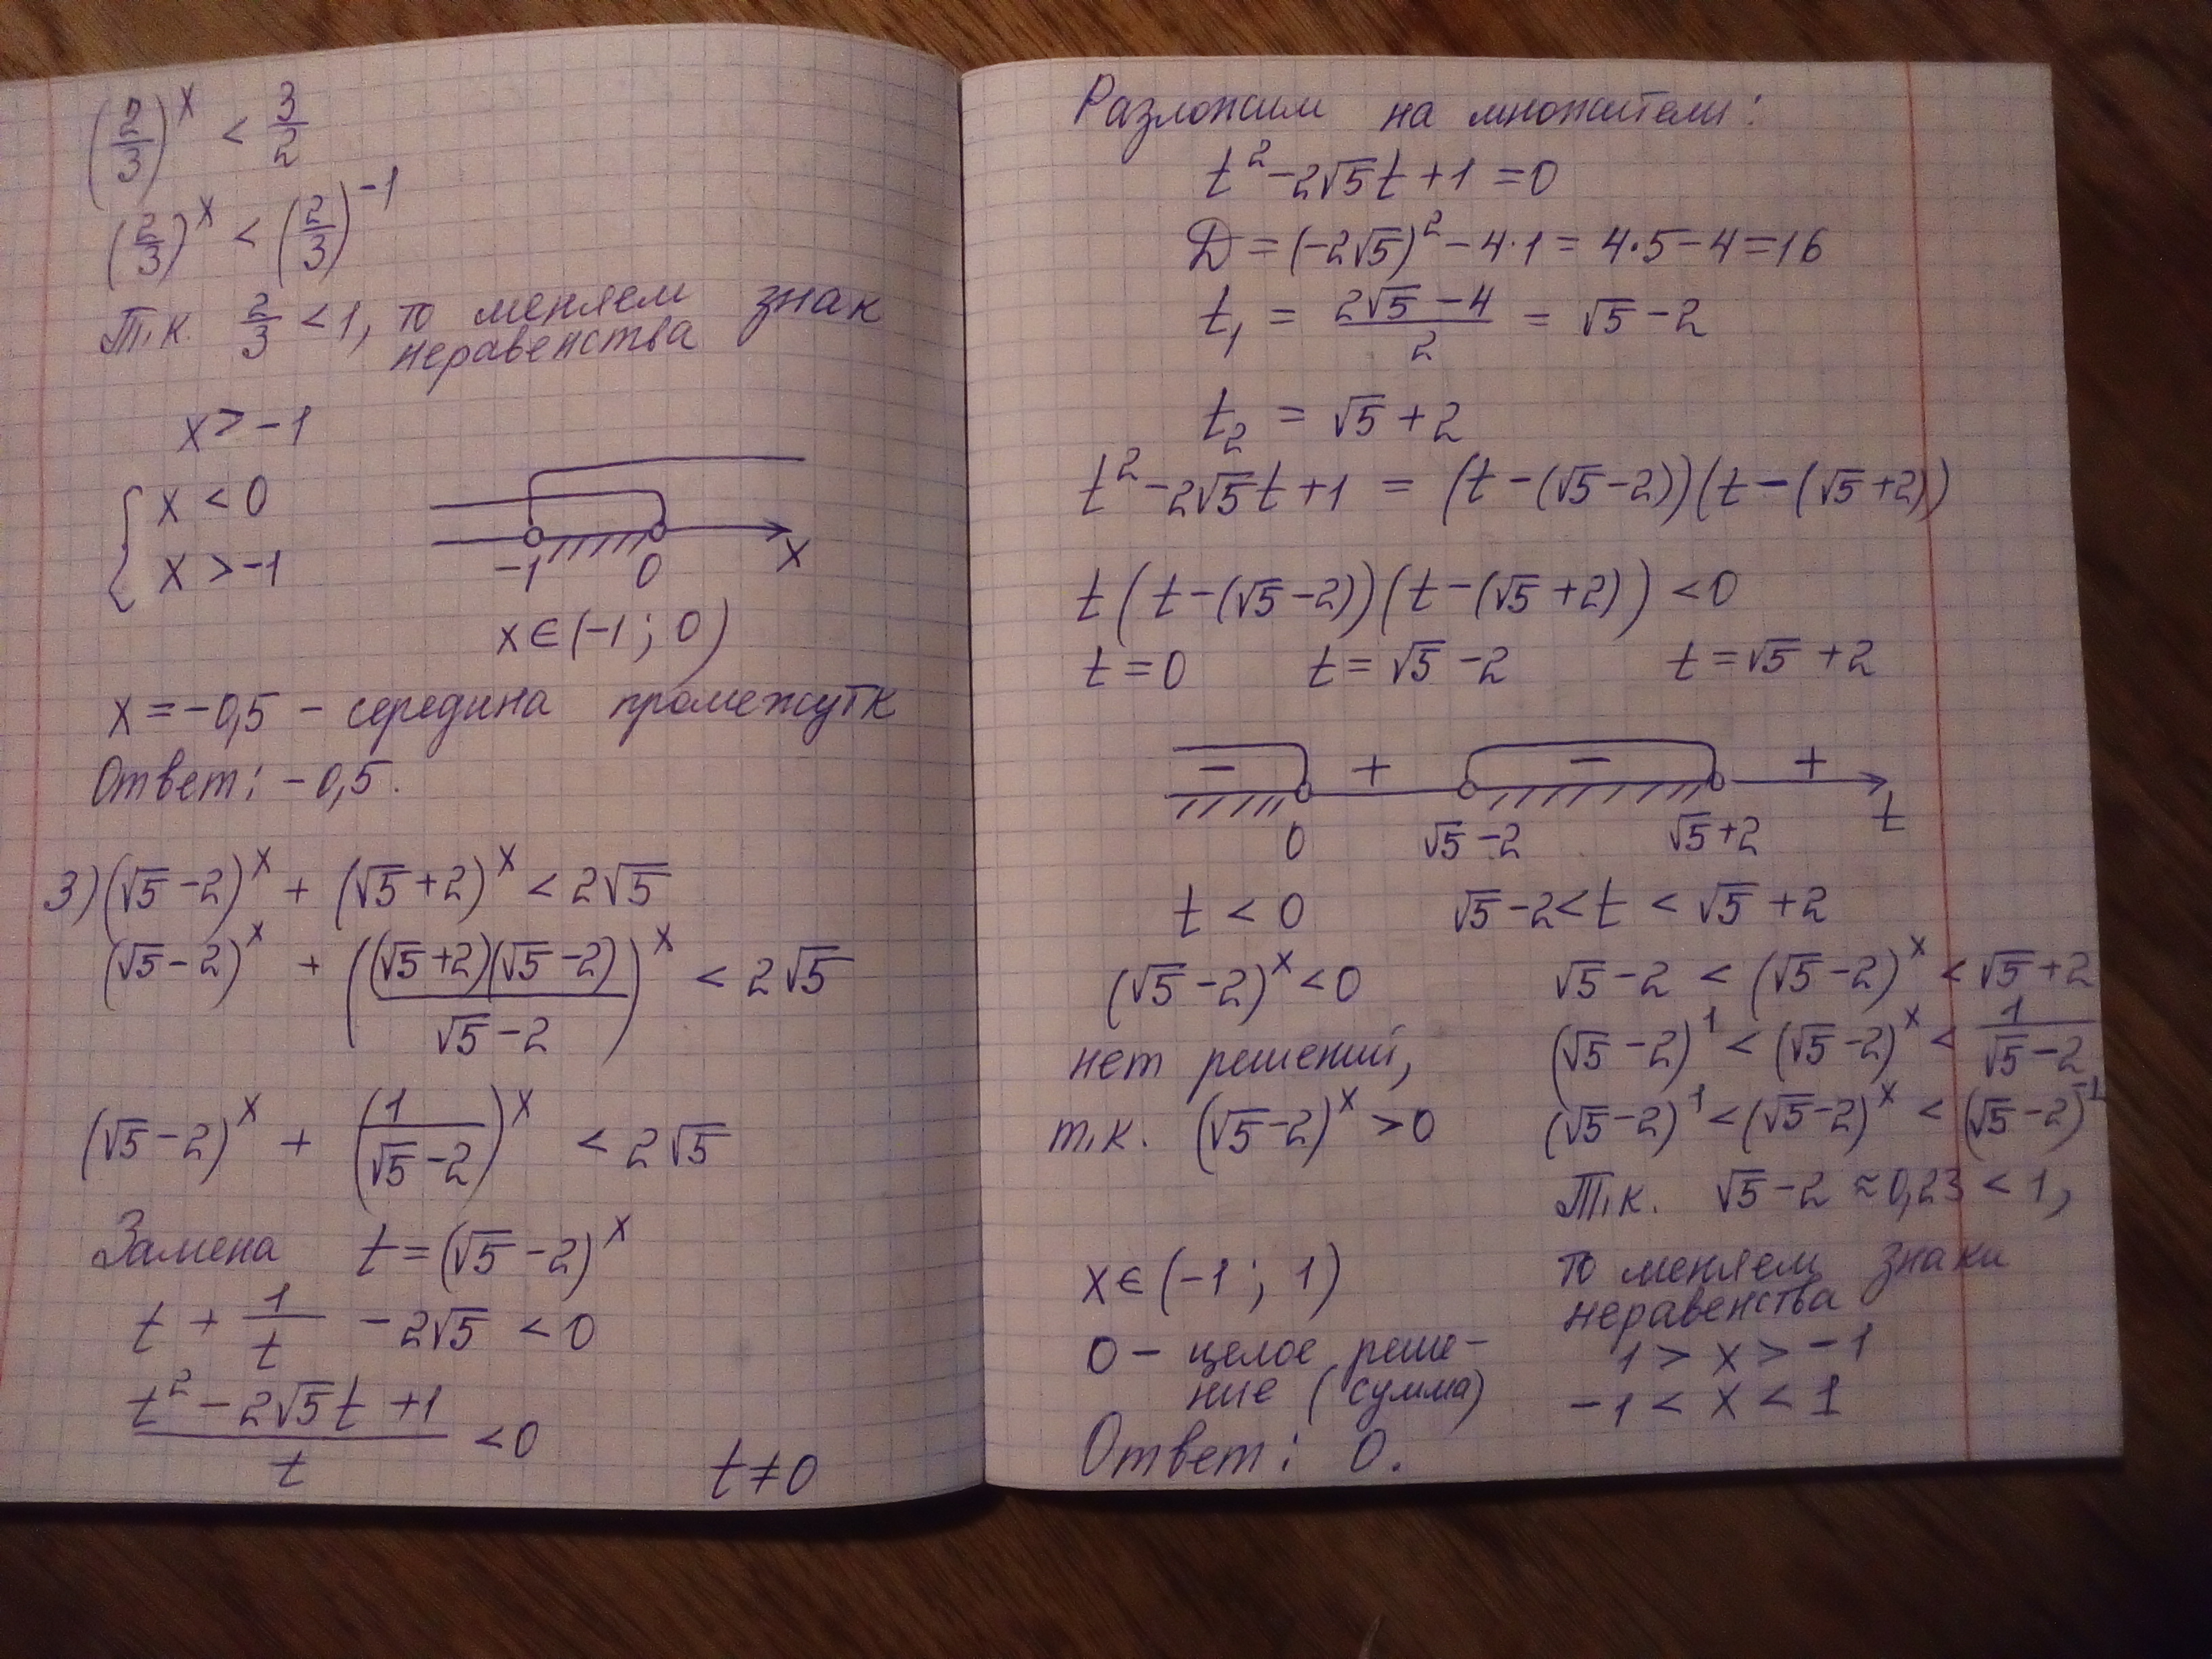 (2/3)^x < 3/2
(2/3)^x < (2/3)^-1
Т.к. 2/3 < 1, то меняем знак
неравенства
x > -1
{ x < 0
x > -1
-1 0 x
x ∈ (-1; 0)
x = -0,5 - середина промежутк
Ответ: -0,5.
3) (√5 - 2)^x + (√5 + 2)^x < 2√5
(√5 - 2)^x + ((√5+2)(√5-2)/(√5-2))^x < 2√5
(√5 - 2)^x + (1/(√5-2))^x < 2√5
Замена t = (√5 - 2)^x
t + 1/t - 2√5 < 0
(t² - 2√5t + 1)/t < 0 t ≠ 0
Разложим на множители:
t² - 2√5t + 1 = 0
D = (-2√5)² - 4·1 = 4·5 - 4 = 16
t₁ = (2√5 - 4)/2 = √5 - 2
t₂ = √5 + 2
t² - 2√5t + 1 = (t - (√5-2))(t - (√5+2))
t(t - (√5-2))(t - (√5+2)) < 0
t = 0 t = √5 - 2 t = √5 + 2
- + - +
0 √5-2 √5+2 t
t < 0 √5-2 < t < √5+2
(√5-2)^x < 0
нет решений,
т.к. (√5-2)^x > 0
√5-2 < (√5-2)^x < √5+2
(√5-2)^1 < (√5-2)^x < 1/(√5-2)
(√5-2)^1 < (√5-2)^x < (√5-2)^-1
Т.к. √5-2 ≈ 0,23 < 1,
то меняем знаки
неравенства
1 > x > -1
-1 < x < 1
x ∈ (-1; 1)
0 - целое реше-
ние (сумма)
Ответ: 0.